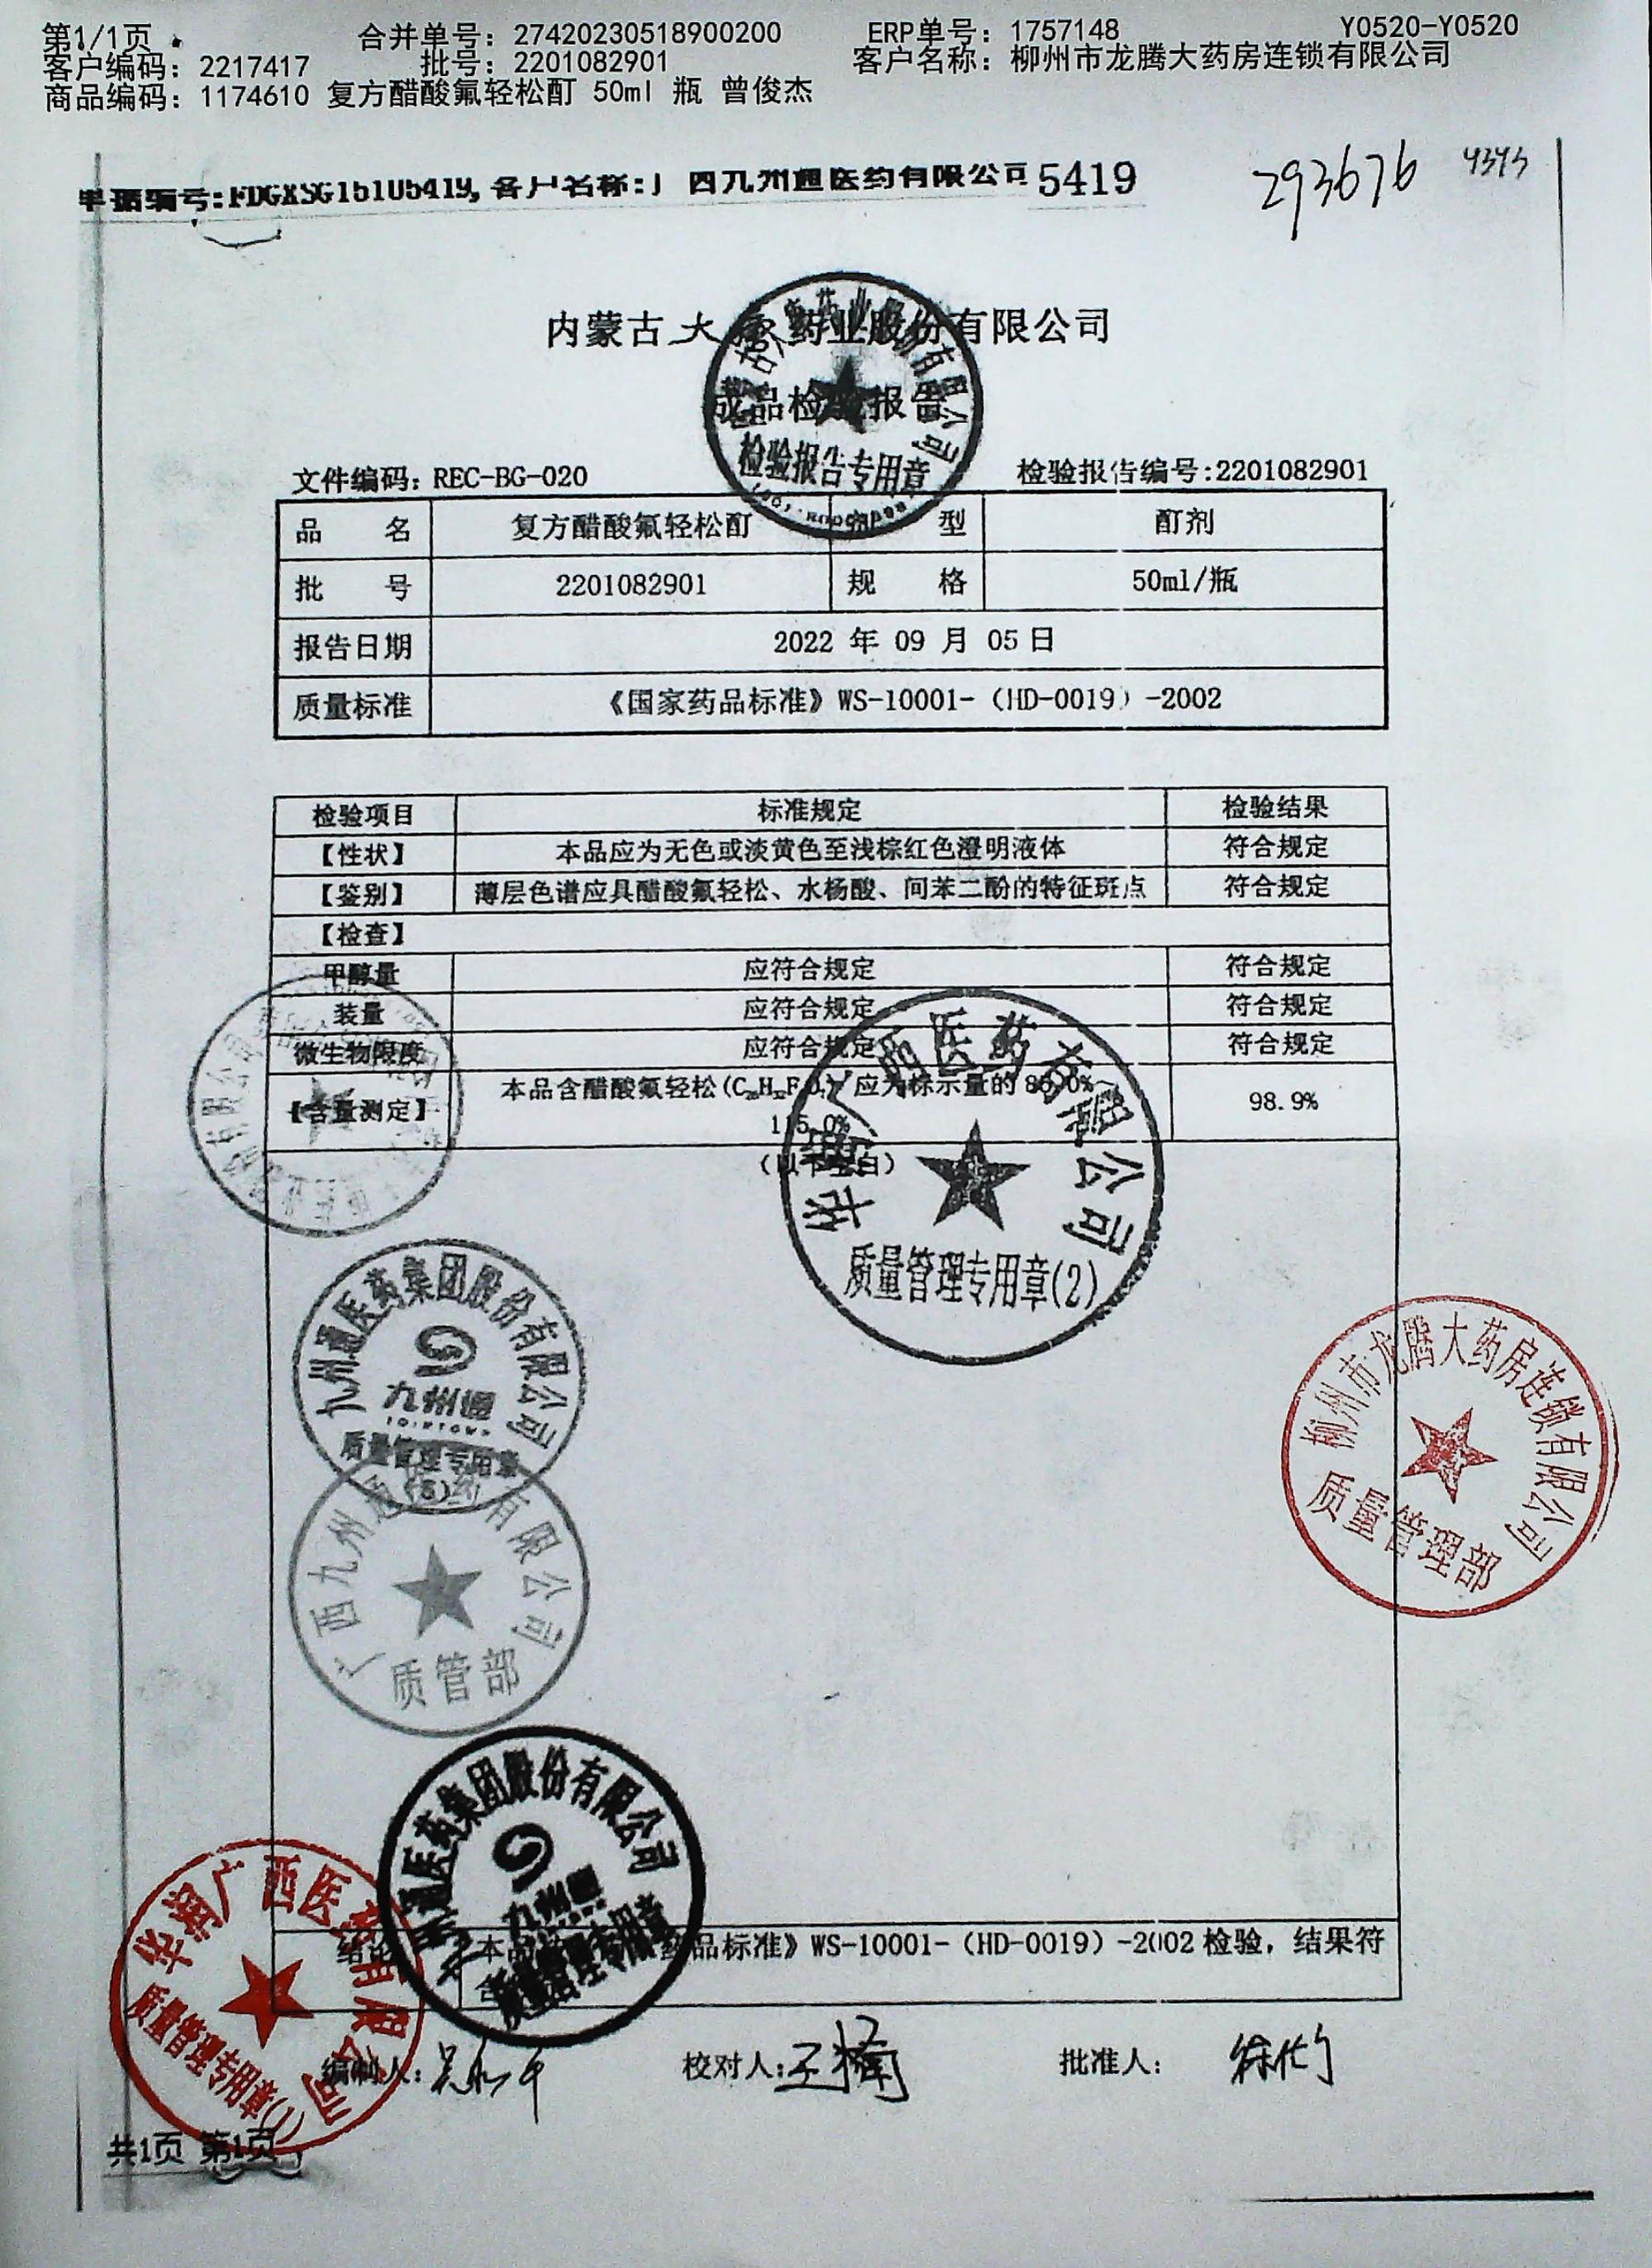 第1/1页 合并单号：27420230518900200 ERP单号：1757148 Y0520-Y0520
客户编码：2217417 批号：2201082901 客户名称：柳州市龙腾大药房连锁有限公司
商品编码：1174610 复方醋酸氟轻松酊 50ml 瓶 曾俊杰
单据编号:FDGXSG15105419,客户名称:广西九州通医药有限公司 5419
293676 4343
内蒙古大唐药业股份有限公司
成品检验报告
检验报告专用章
文件编码：REC-BG-020 检验报告编号:2201082901
品 名 复方醋酸氟轻松酊 型 酊剂
批 号 2201082901 规 格 50ml/瓶
报告日期 2022 年 09 月 05 日
质量标准 《国家药品标准》WS-10001-（HD-0019）-2002
检验项目 标准规定 检验结果
【性状】 本品应为无色或淡黄色至浅棕红色澄明液体 符合规定
【鉴别】 薄层色谱应具醋酸氟轻松、水杨酸、间苯二酚的特征斑点 符合规定
【检查】
甲醇量 应符合规定 符合规定
装量 应符合规定 符合规定
微生物限度 应符合规定 符合规定
【含量测定】 本品含醋酸氟轻松 应为标示量的 98.9%
115.0%
（以下空白）
广西医药有限公司
质量管理专用章(2)
九州通医药集团股份有限公司
九州通
JOINTOWN
质量管理专用章
(5)
广西九州通医药有限公司
质管部
柳州市龙腾大药房连锁有限公司
质量管理部
九州通医药集团股份有限公司
九州通
质量管理专用章
华润广西医药有限公司
质量管理专用章(1)
结论 药品标准》WS-10001-（HD-0019）-2002 检验，结果符
编制人： 校对人：王楠 批准人：
共1页 第1页